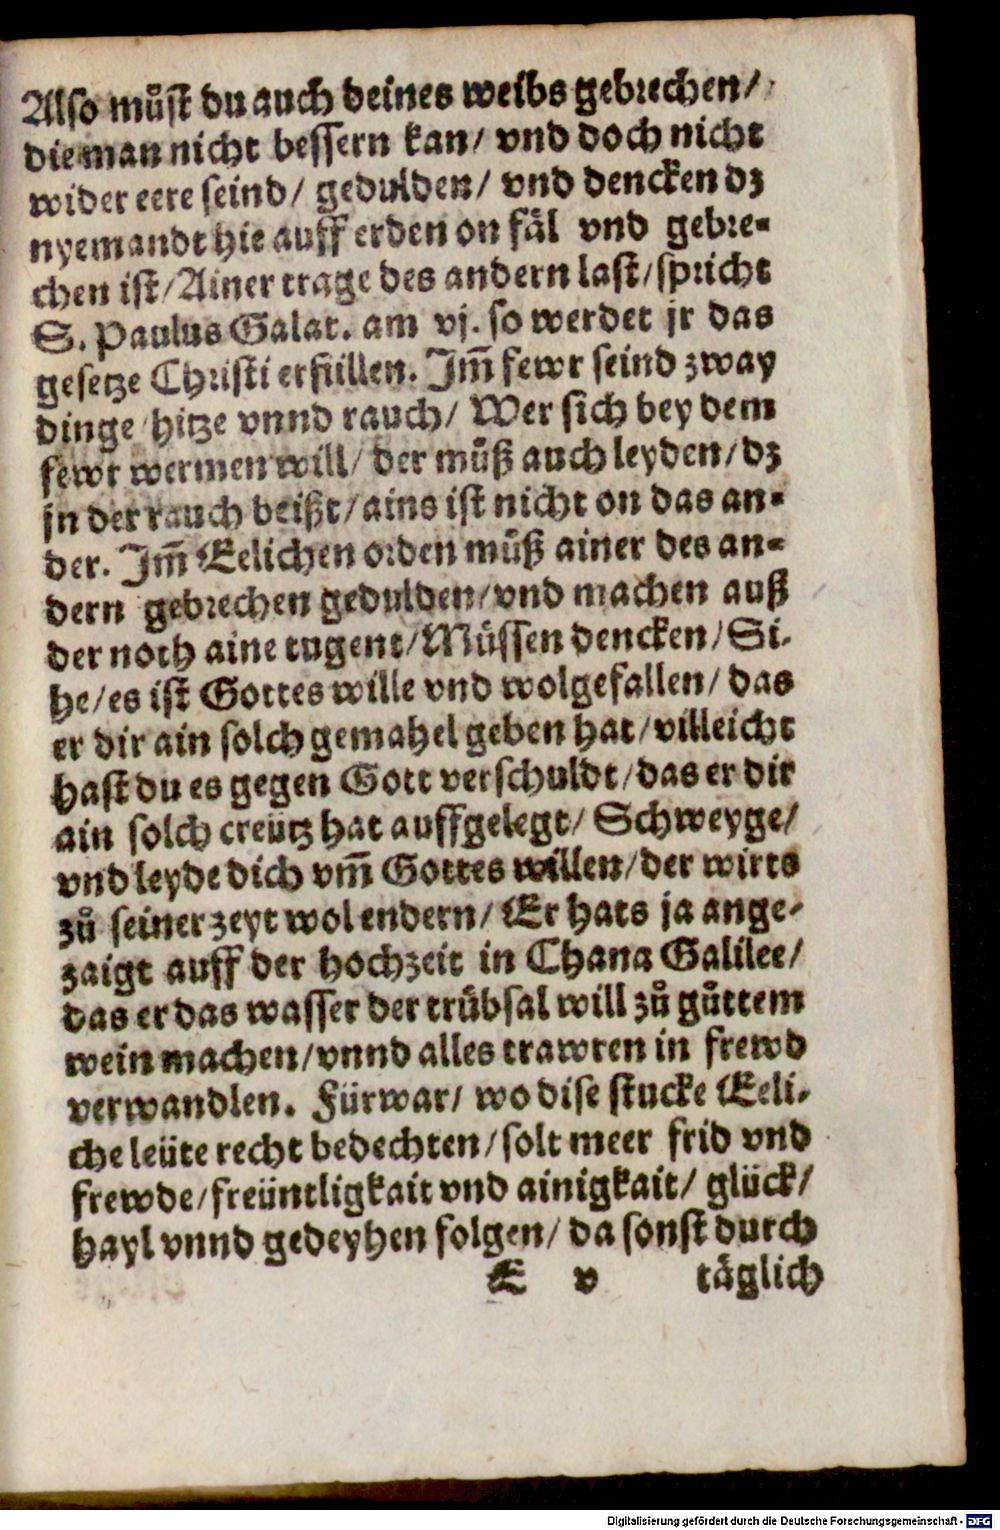 Also můst du auch deines weibs gebrechen/
die man nicht bessern kan/ vnd doch nicht
wider eere seind/ gedulden/ vnd dencken dz
nyemandt hie auff erden on fäl vnd gebre-
chen ist/ Ainer trage des andern last/ spricht
S. Paulus Galat. am vj. so werdet jr das
gesetze Christi erfüllen. Im̃ fewr seind zway
dinge hitze vnnd rauch/ Wer sich bey dem
fewr wermen will/ der můß auch leyden/ dz
jn der rauch beißt/ ains ist nicht on das an-
der. Im̃ Eelichen orden můß ainer des an-
dern gebrechen gedulden/ vnd machen auß
der noth aine tugent/ Můssen dencken/ Si-
he/ es ist Gottes wille vnd wolgefallen/ das
er dir ain solch gemahel geben hat/ villeicht
hast du es gegen Gott verschuldt/ das er dir
ain solch creütz hat auffgelegt/ Schweyge/
vnd leyde dich vm̃ Gottes willen/ der wirts
zů seiner zeyt wol endern/ Er hats ja ange-
zaigt auff der hochzeit in Chana Galilee/
das er das wasser der trůbsal will zů gůttem
wein machen/ vnnd alles trawren in frewd
verwandlen. Fürwar/ wo dise stucke Eeli-
che leüte recht bedechten/ solt meer frid vnd
frewde/ freüntligkait vnd ainigkait/ glück/
hayl vnnd gedeyhen folgen/ da sonst durch
E v täglich
Digitalisierung gefördert durch die Deutsche Forschungsgemeinschaft - DFG